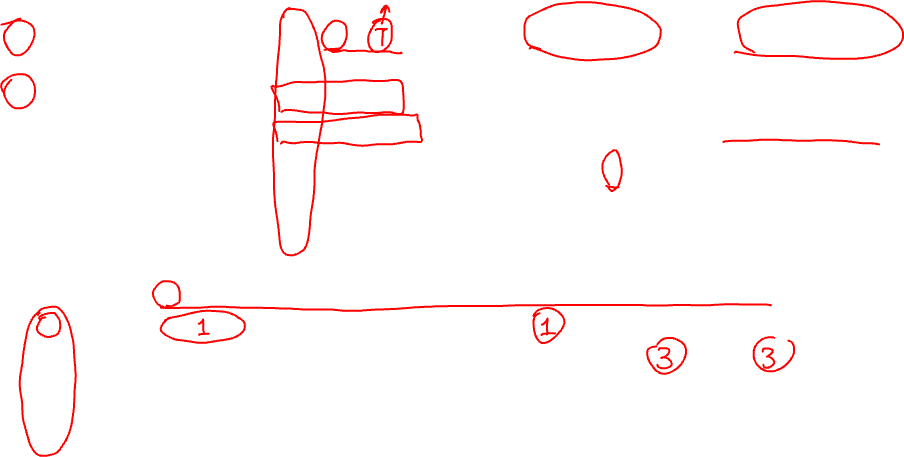 T
1 1
3 3